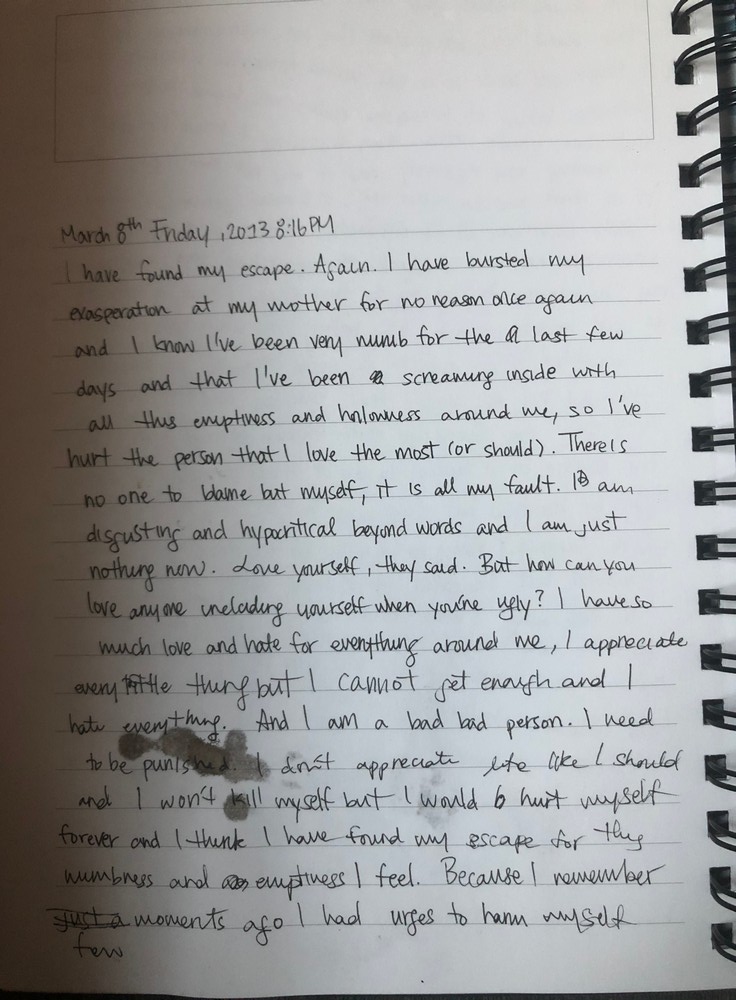 March 8th Friday, 2013 8:16PM
I have found my escape. Again. I have bursted my
exasperation at my mother for no reason once again
and I know I've been very numb for the a last few
days and that I've been a screaming inside with
all this emptiness and hollowness around me, so I've
hurt the person that I love the most (or should). There is
no one to blame but myself, it is all my fault. I am
disgusting and hypocritical beyond words and I am just
nothing now. Love yourself, they said. But how can you
love anyone uncluding yourself when you're ugly? I have so
much love and hate for everything around me, I appreciate
every little thing but I cannot get enough and I
hate everything. And I am a bad bad person. I need
to be punished. I don't appreciate life like I should
and I won't kill myself but I would b hurt myself
forever and I think I have found my escape for this
numbness and emptiness I feel. Because I remember
just a moments ago I had urges to harm myself
few